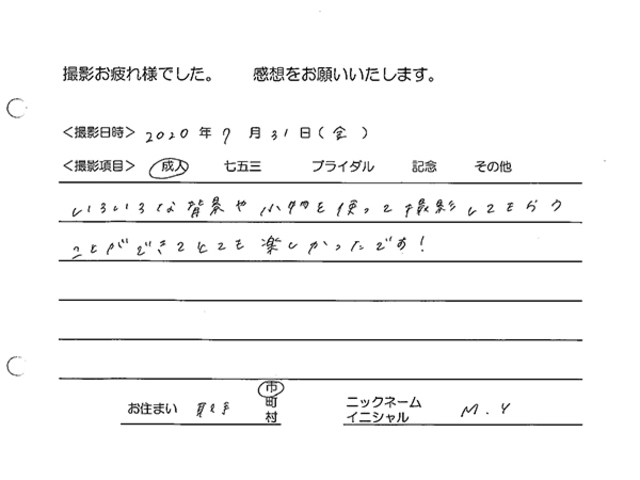 撮影お疲れ様でした。 感想をお願いいたします。
<撮影日時> 2020年7月31日(金)
<撮影項目> 成人 七五三 ブライダル 記念 その他
いろいろな背景や小物を使って撮影してもらう
ことができてとても楽しかったです!
お住まい 取手 市 町 村
ニックネーム イニシャル M.Y